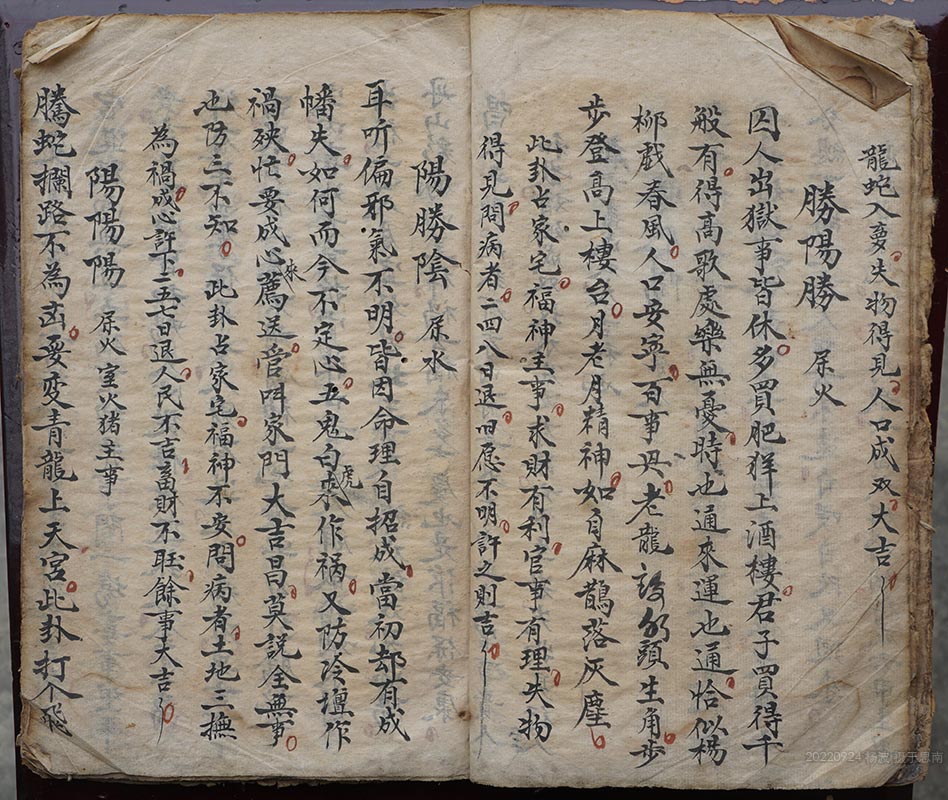 龍蛇入夢失物得見人口成双大吉
勝陽勝 尿火
囚人出獄事皆休多買肥羊上酒樓君子買得千
般有得高歌處樂無憂時也通來運也通恰似楊
柳戲春風人口安寧百事 老龍 頭生角步
步登高上樓台月老月精神如自麻鵲落灰塵
此卦占家宅福神主事求財有利官事有理失物
得見問病者二四八日退旧愿不明許之則吉
陽勝陰 尿水
耳听偏邪氣不明皆因命理自招成當初却有成
幡失如何而今不定心五鬼白虎來作祸又防冷壇作
禍殃忙要成心薦送 叫家門大吉曰莫説全無事
也防三不知此卦占家宅福神不安問病者土地三撫
為禍成心許下二五七日退人民不吉畜財不旺餘事大吉
陽陽陽 尿火 室火猪主事
騰蛇攔路不為凶要变青龍上天宮此卦打个飛
20220924 杨 摄于思南